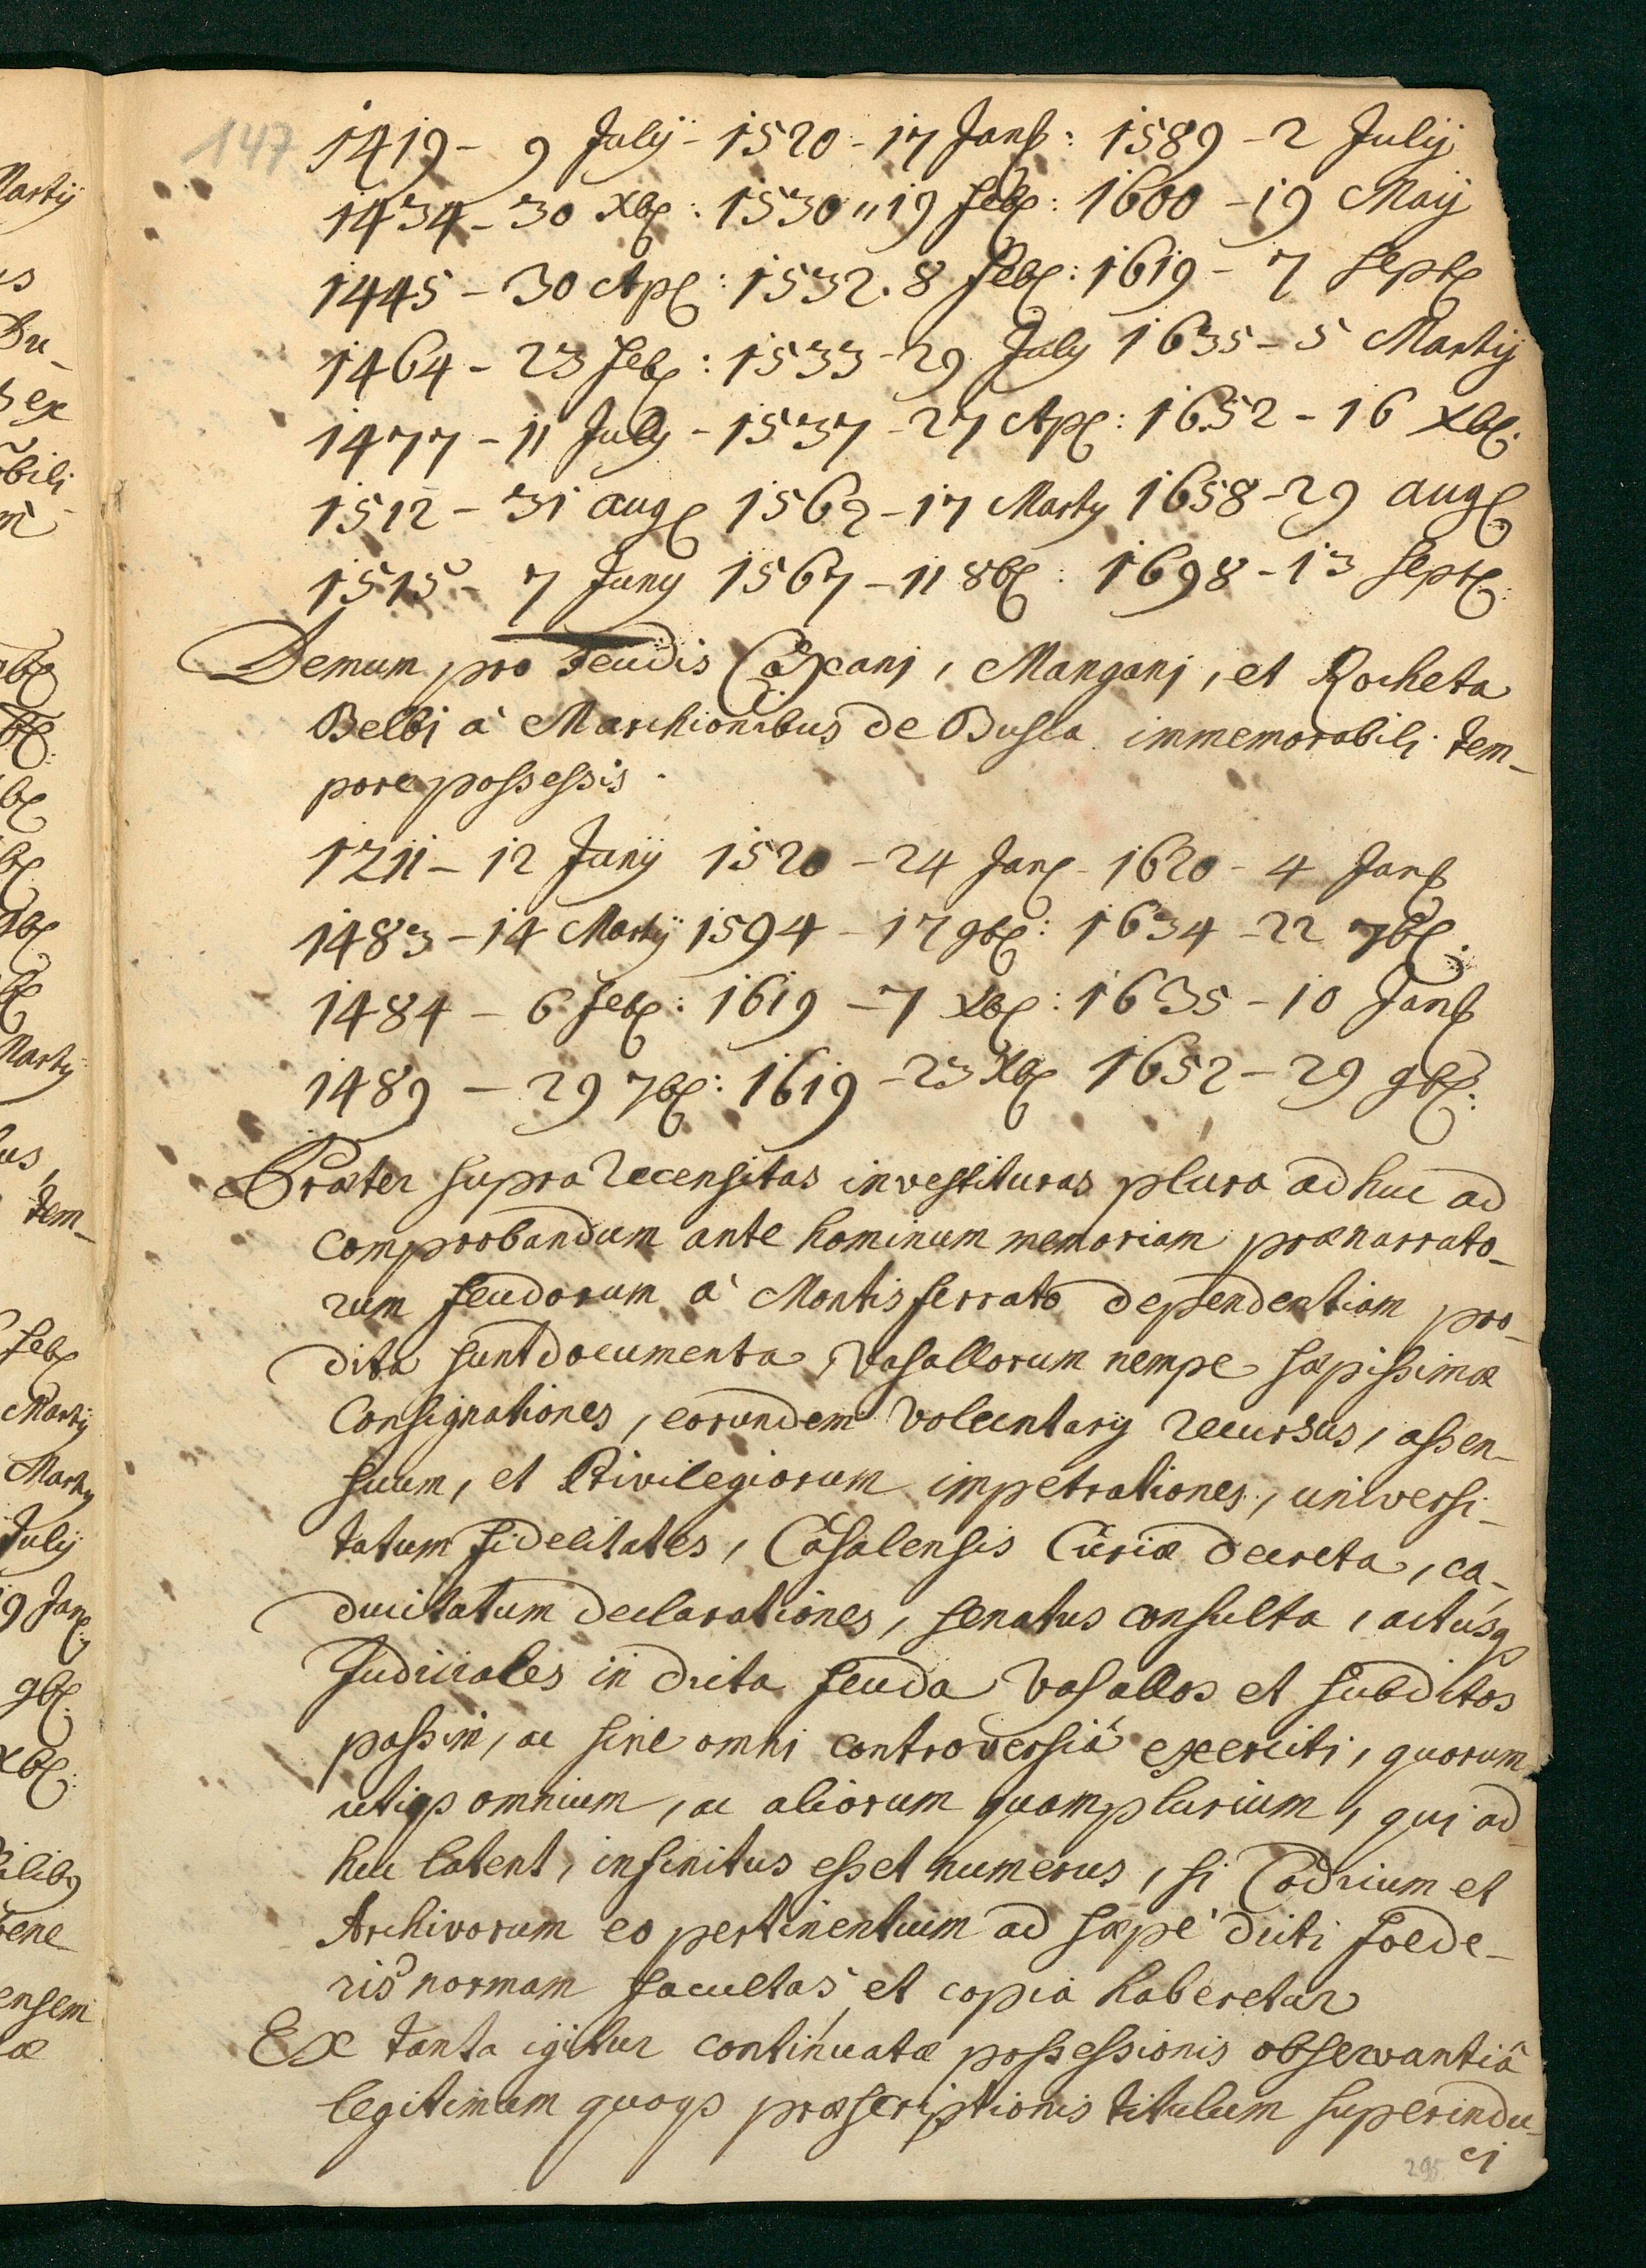 147
1419 - 9 Julij - 1520 - 17 Janr: 1589 - 2 Julij
1434 - 30 Xbr: 1530 " 19 Febr: 1600 - 19 Maij
1445 - 30 Apr: 1532. 8 Febr: 1619 - 7 Septr
1464 - 23 Febr: 1533 - 29 July 1635 - 5 Martij
1477 - 11 July - 1537 - 27 Apr: 1652 - 16 Xbr:
1512 - 31 augr 1562 - 17 Marty 1658 - 29 augr
1515 - 7 Juny 1567 - 11 8br: 1698 - 13 Septr:
Demum pro Feudis Coxani, Manganj, et Rocheta
Belbi à Marchionibus de Busca immemorabilj tem-
pore possessis.
1211 - 12 Junij 1520 - 24 Janr - 1620 - 4 Janr
1483 - 14 Martij 1594 - 17 9br: 1634 - 22 7br:
1484 - 6 Febr: 1619 - 7 Xbr: 1635 - 10 Janr
1489 - 29 7br: 1619 - 23 Xbr 1652 - 29 9br:
Præter supra recensitas investituras plura adhuc ad
comprobandum ante hominum memoriam prænarrato-
rum feudorum à Montisferrato dependentiam pro-
dita sunt documenta, Vasallorum nempe sæpissimæ
Consignationes, eorundem voluntarij recursus, assen-
suum, et Privilegiorum impetrationes, universi-
tatum fidelitates, Casalensis Curiæ decreta, ca-
ducitatum declarationes, senatus consulta, actusq
Judiciales in dicta feuda Vasallos et subditos
passim, ac sine omni controversiâ exerciti, quorum
utiqs omnium, ac aliorum quamplurium, qui ad-
huc latent, infinitus esset numerus, si Codicum et
Archivorum eo pertinentium ad sæpè dicti foede-
ris normam facultas et copia haberetur
Ex tanta igitur continuatæ possessionis observantiâ
legitimum quoqs præscriptionis titulum superindu-
ci
295